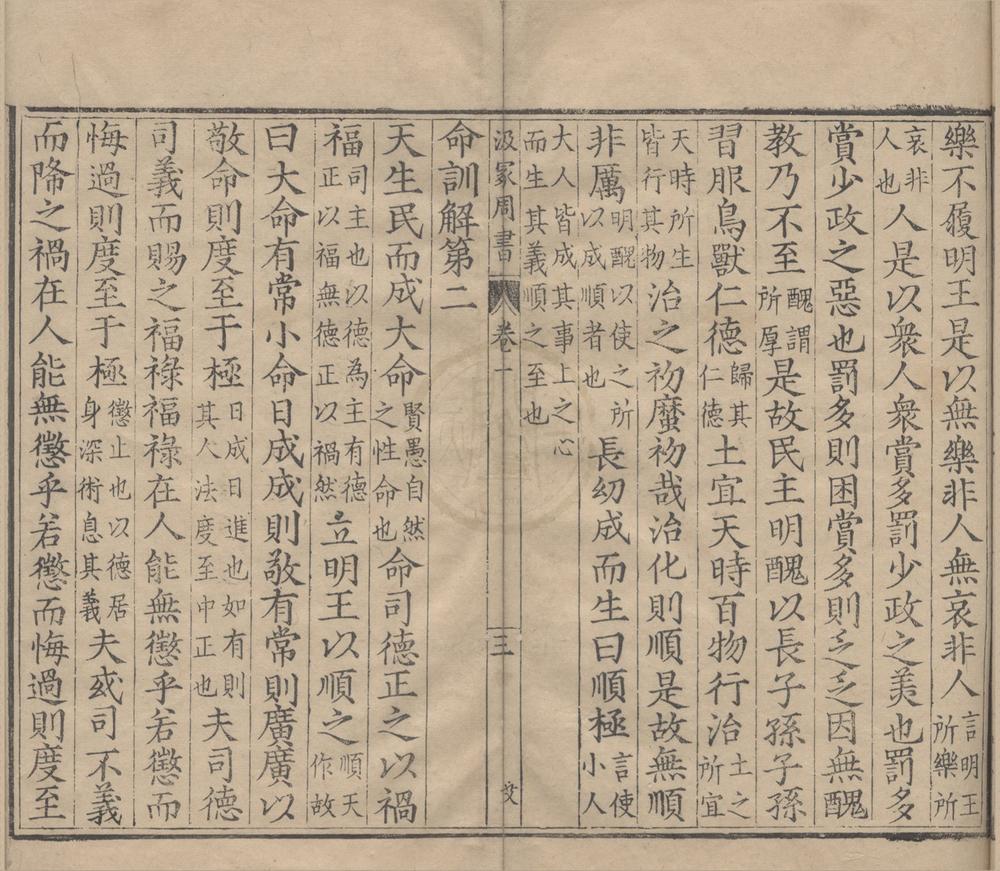 樂不履明王是以無樂非人無哀非人言明王所樂所
哀非人也人是以衆人衆賞多罰少政之美也罰多
賞少政之惡也罰多則困賞多則乏乏因無醜
教乃不至醜謂所厚是故民主明醜以長子孫子孫
習服鳥獸仁德歸其仁德土宜天時百物行治土之所宜
天時所生皆行其物治之初蠻初哉治化則順是故無順
非厲明醜以使之所以成順者也長幼成而生曰順極言使小人
大人皆成其事上之心而生其義順之至也
汲冢周書 卷一 三
命訓解第二
天生民而成大命賢愚自然之性命也命司德正之以禍
福司主也以德為主有德正以福無德正以禍然立明王以順之順天作故
曰大命有常小命日成成則敬有常則廣廣以
敬命則度至于極日成日進也如有則其人法度至中正也夫司德
司義而賜之福祿福祿在人能無懲乎若懲而
悔過則度至于極懲止也以德居身深術息其義夫或司不義
而降之禍在人能無懲乎若懲而悔過則度至